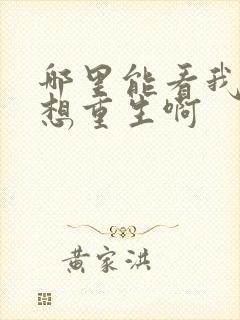 哪里能看我
想重生啊
黄家洪